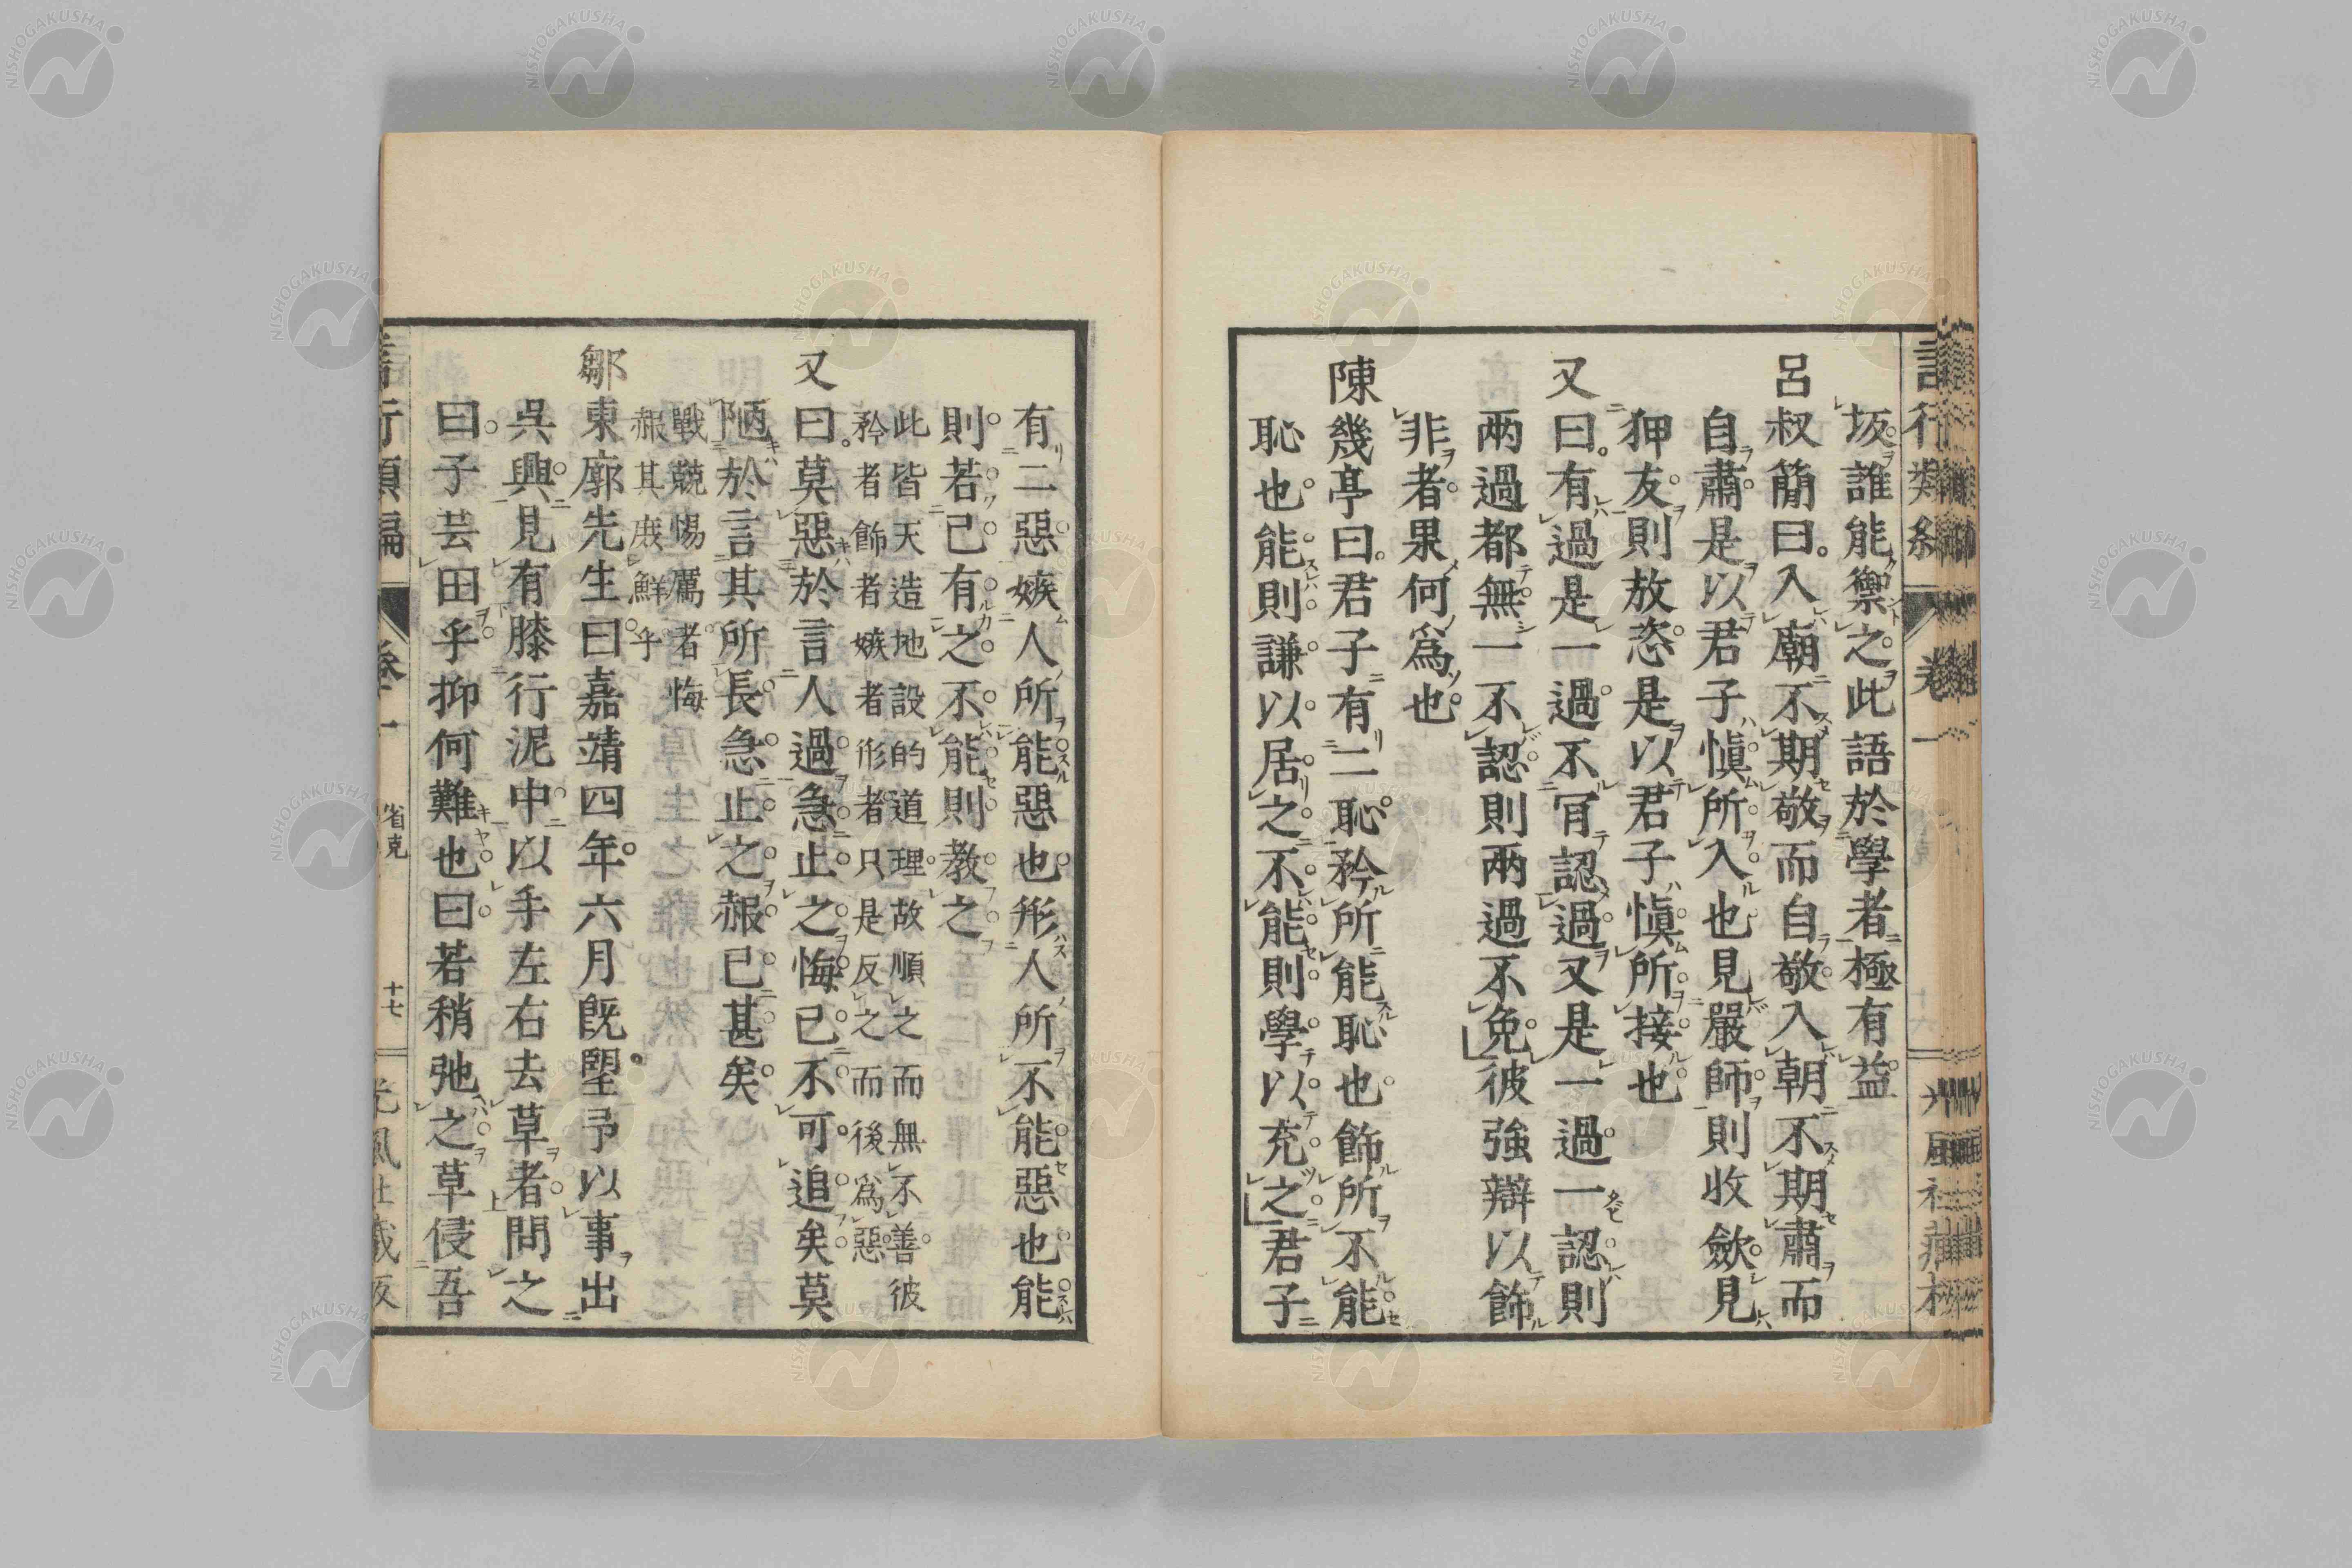 坂誰能禦之此語於學者極有益
呂叔簡曰入廟不期敬而自敬入朝不期肅而
自肅是以君子愼所入也見嚴師則收斂見
狎友則放恣是以君子愼所接也
又曰有過是一過不肎認過又是一過一認則
兩過都無一不認則兩過不免彼強辯以飾
非者果何爲也
陳幾亭曰君子有二恥矜所能恥也飾所不能
恥也能則謙以居之不能則學以充之君子
有二惡嫉人所能惡也形人所不能惡也能
則若己有之不能則教之
此皆天造地設的道理故順之而無不善彼
矜者飾者嫉者形者只是反之而後爲惡
又曰莫惡於言人過急止之悔己不可追矣莫
陋於言其所長急止之赧已甚矣
戰兢惕厲者悔
赧其庶鮮乎
鄒東廓先生曰嘉靖四年六月旣朢予以事出
吳興見有膝行泥中以手左右去草者問之
曰子芸田乎抑何難也曰若稍弛之草侵吾
言行類編 卷一 省克 十七 光風社藏板
NISHOGAKUSHA